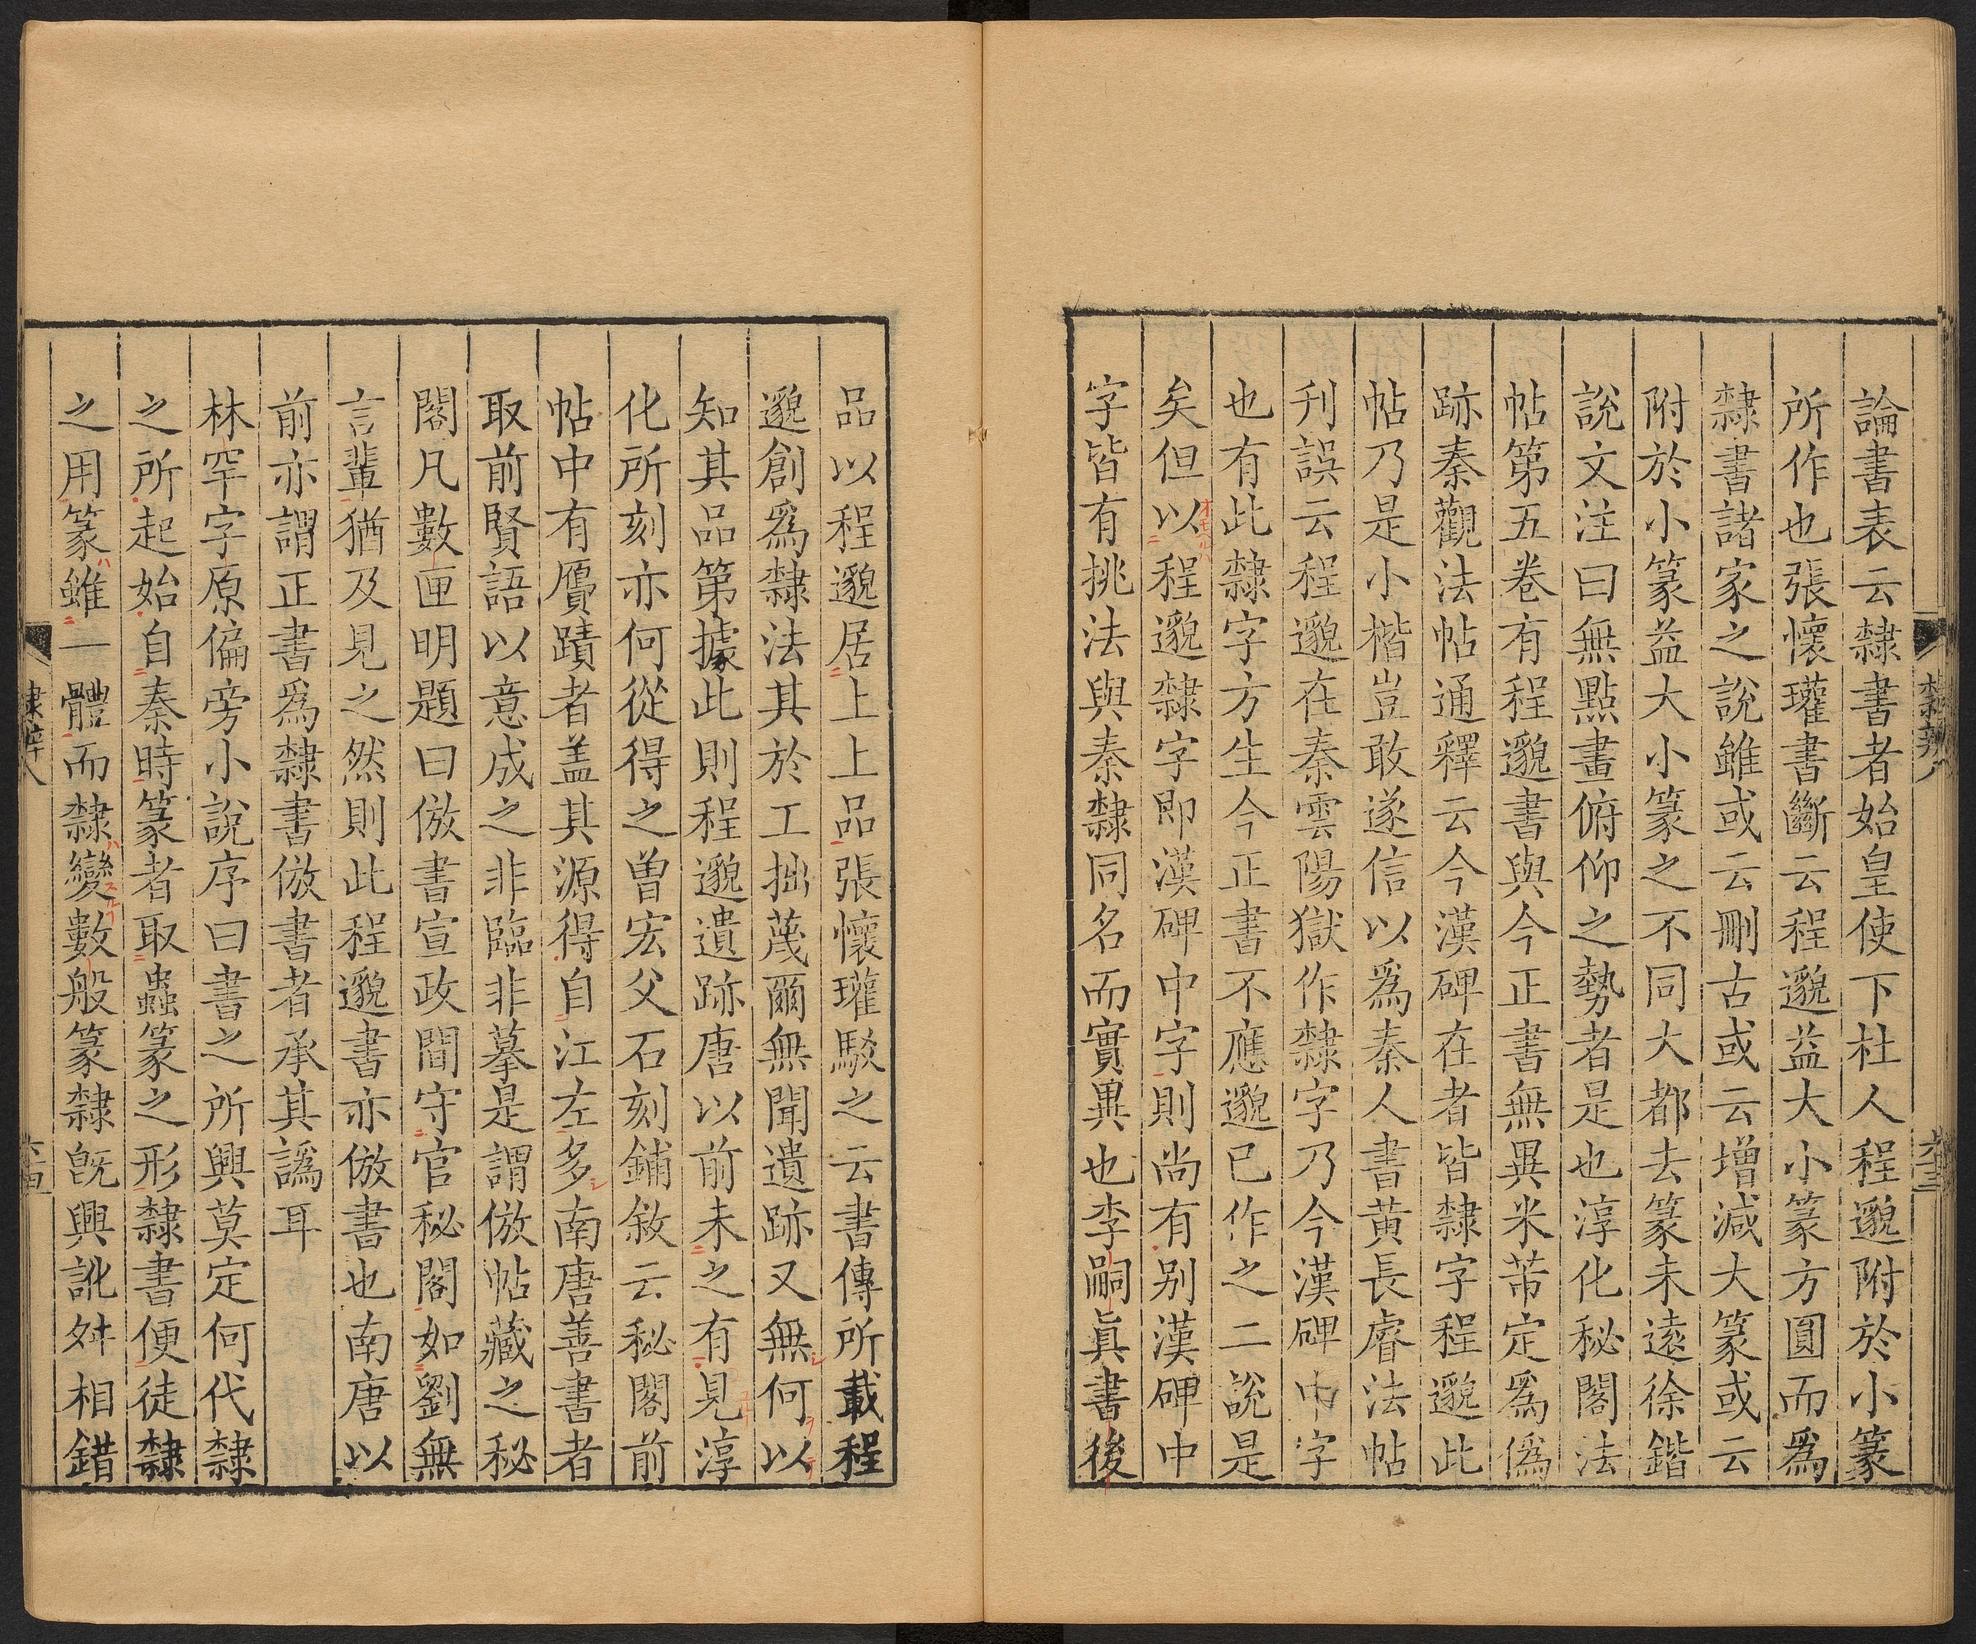 論書表云隸書者始皇使下杜人程邈附於小篆
所作也張懷瓘書斷云程邈益大小篆方圓而爲
隸書諸家之說雖或云刪古或云增減大篆或云
附於小篆益大小篆之不同大都去篆未遠徐鍇
說文注曰無點畫俯仰之勢者是也淳化秘閣法
帖第五卷有程邈書與今正書無異米芾定爲僞
跡秦觀法帖通釋云今漢碑在者皆隸字程邈此
帖乃是小楷豈敢遂信以爲秦人書黃長睿法帖
刊誤云程邈在秦雲陽獄作隸字乃今漢碑中字
也有此隸字方生今正書不應邈已作之二說是
矣但以程邈隸字即漢碑中字則尚有别漢碑中
字皆有挑法與秦隸同名而實異也李嗣眞書後
品以程邈居上上品張懷瓘駁之云書傳所載程
邈創爲隸法其於工拙蔑爾無聞遺跡又無何以
知其品第據此則程邈遺跡唐以前未之有見淳
化所刻亦何從得之曽宏父石刻鋪敘云秘閣前
帖中有贗蹟者盖其源得自江左多南唐善書者
取前賢語以意成之非臨非摹是謂倣帖藏之秘
閣凡數匣明題曰倣書宣政間守官秘閣如劉無
言輩猶及見之然則此程邈書亦倣書也南唐以
前亦謂正書爲隸書倣書者承其譌耳
林罕字原偏旁小說序曰書之所興莫定何代隸
之所起始自秦時篆者取蟲篆之形隸書便徒隸
之用篆雖一體而隸變數般篆隸旣興訛舛相錯
隸辨八